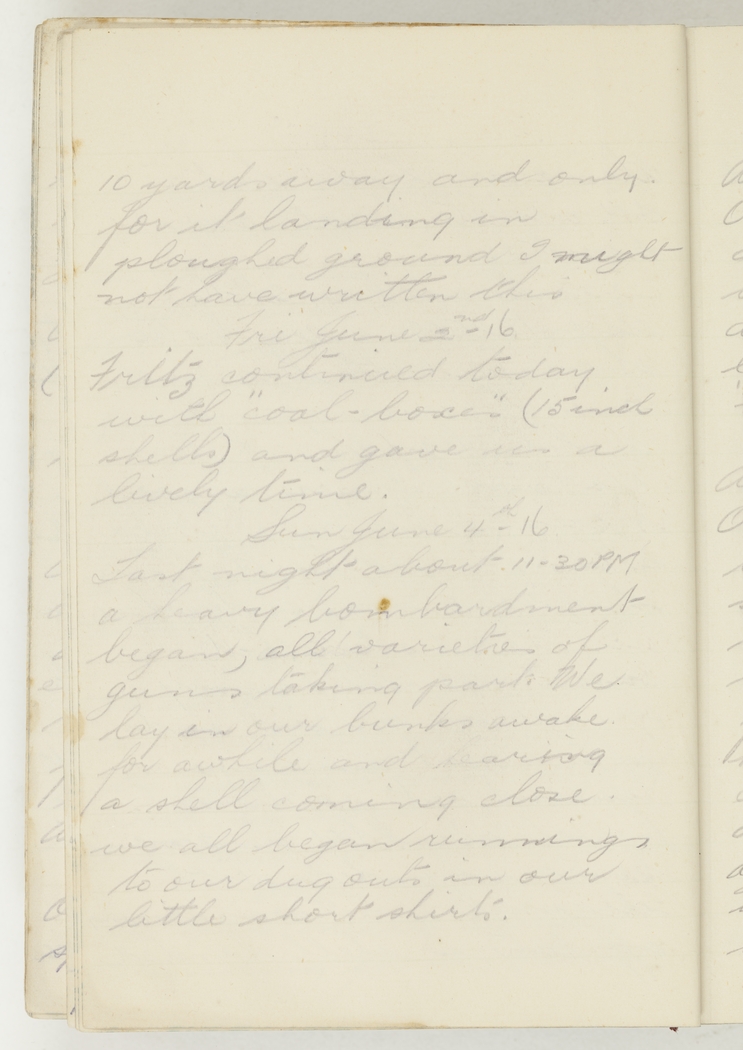 10 yards away and only
for it landing in
ploughed ground I might
not have written this
Fri June 2nd-16
Fritz continued today
with "coal-boxes" (15 inch
shells) and gave us a
lively time.
Sun June 4th-16
Last night about 11-30 PM
a heavy bombardment
began, all varieties of
guns taking part. We
lay in our bunks awake
for awhile and hearing
a shell coming close
we all began running
to our dug outs in our
little short shirts.